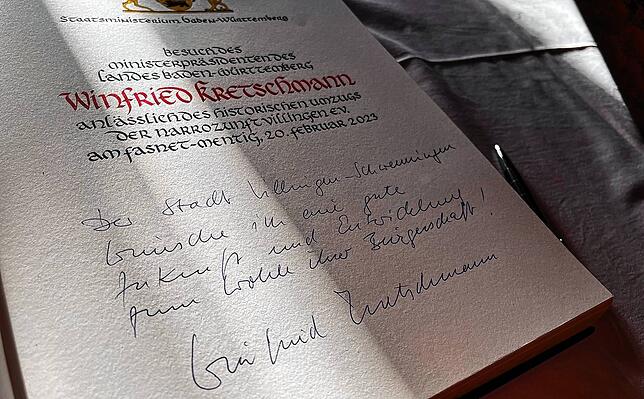 Staatsministerium Baden-Württemberg
Besuch des
Ministerpräsidenten des
Landes Baden-Württemberg
Winfried Kretschmann
anlässlich des historischen Umzugs
der Narrozunft Villingen e.V.
am Fasnet-Mentig, 20. Februar 2023
Der Stadt Villingen-Schwenningen
wünsche ich eine gute
Zukunft und Entwicklung
zum Wohle ihrer Bürgerschaft!
Winfried Kretschmann